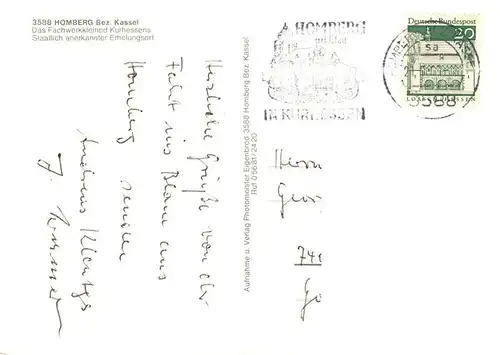 3588 HOMBERG Bez. Kassel
Das Fachwerkkleinod Kurhessens
Staatlich anerkannter Erholungsort
HOMBERG
IN KURHESSEN
Deutsche Bundespost
20
LORSCH/HESSEN
3588
Herzliche Grüße von der
Fahrt ins Blaue aus
Homberg senden
Andreas
Aufnahme u. Verlag Photomeister Eigenbrod 3588 Homberg Bez. Kassel
Ruf 05681/2420
Herrn
Geor